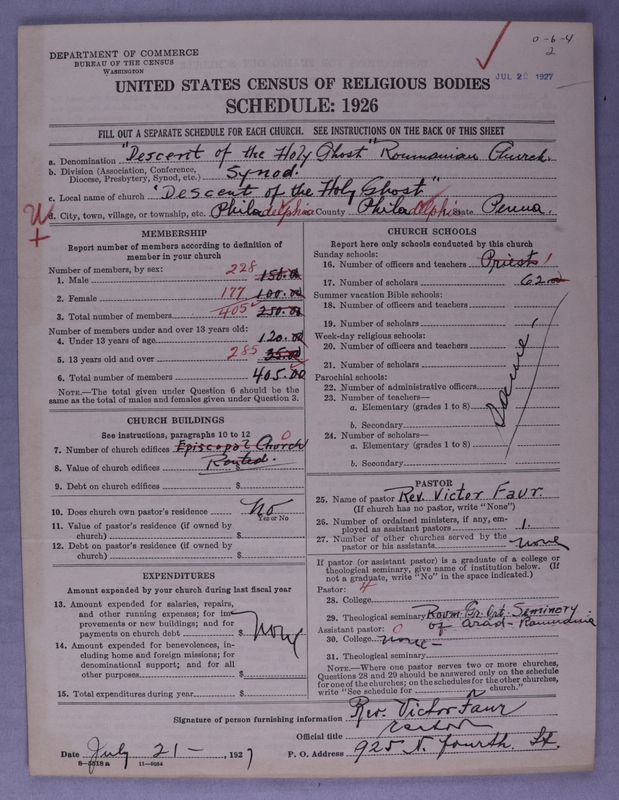 0-6-4
2
DEPARTMENT OF COMMERCE
BUREAU OF THE CENSUS
WASHINGTON
JUL 22 1927
UNITED STATES CENSUS OF RELIGIOUS BODIES
SCHEDULE: 1926
FILL OUT A SEPARATE SCHEDULE FOR EACH CHURCH. SEE INSTRUCTIONS ON THE BACK OF THIS SHEET
a. Denomination "Descent of the Holy Ghost" Roumanian Church.
b. Division (Association, Conference, Diocese, Presbytery, Synod, etc.) Synod.
c. Local name of church "Descent of the Holy Ghost"
d. City, town, village, or township, etc. Philadelphia County Philadelphia State Penna.
MEMBERSHIP
Report number of members according to definition of
member in your church
Number of members, by sex:
1. Male 228 150.00
2. Female 177 100.00
3. Total number of members 405 250.00
Number of members under and over 13 years old:
4. Under 13 years of age 120.00
5. 13 years old and over 285 35.00
6. Total number of members 405.00
NOTE.—The total given under Question 6 should be the
same as the total of males and females given under Question 3.
CHURCH BUILDINGS
See instructions, paragraphs 10 to 12
7. Number of church edifices Episcopal Church 0
8. Value of church edifices $ Rented.
9. Debt on church edifices $
10. Does church own pastor's residence No
Yes or No
11. Value of pastor's residence (if owned by
church) $
12. Debt on pastor's residence (if owned by
church) $
EXPENDITURES
Amount expended by your church during last fiscal year
13. Amount expended for salaries, repairs,
and other running expenses; for im-
provements or new buildings; and for
payments on church debt $ None
14. Amount expended for benevolences, in-
cluding home and foreign missions; for
denominational support; and for all
other purposes $
15. Total expenditures during year $
CHURCH SCHOOLS
Report here only schools conducted by this church
Sunday schools:
16. Number of officers and teachers Priests 1
17. Number of scholars 62.00
Summer vacation Bible schools:
18. Number of officers and teachers
19. Number of scholars
Week-day religious schools:
20. Number of officers and teachers
21. Number of scholars
Parochial schools:
22. Number of administrative officers
23. Number of teachers—
a. Elementary (grades 1 to 8)
b. Secondary
24. Number of scholars—
a. Elementary (grades 1 to 8)
b. Secondary
PASTOR
25. Name of pastor Rev. Victor Faur.
(If church has no pastor, write "None")
26. Number of ordained ministers, if any, em-
ployed as assistant pastors 1.
27. Number of other churches served by the
pastor or his assistants none
If pastor (or assistant pastor) is a graduate of a college or
theological seminary, give name of institution below. (If
not a graduate, write "No" in the space indicated.)
Pastor:
28. College
29. Theological seminary Roum. Gr. Ort. Seminory
of Arad-Roumania
Assistant pastor: 0
30. College none-
31. Theological seminary
NOTE.—Where one pastor serves two or more churches,
Questions 28 and 29 should be answered only on the schedule
for one of the churches; on the schedules for the other churches,
write "See schedule for church."
Signature of person furnishing information Rev. Victor Faur
Official title
Date July 21- , 1927 P. O. Address 925 N. fourth. St.
8-5518a 11-9054